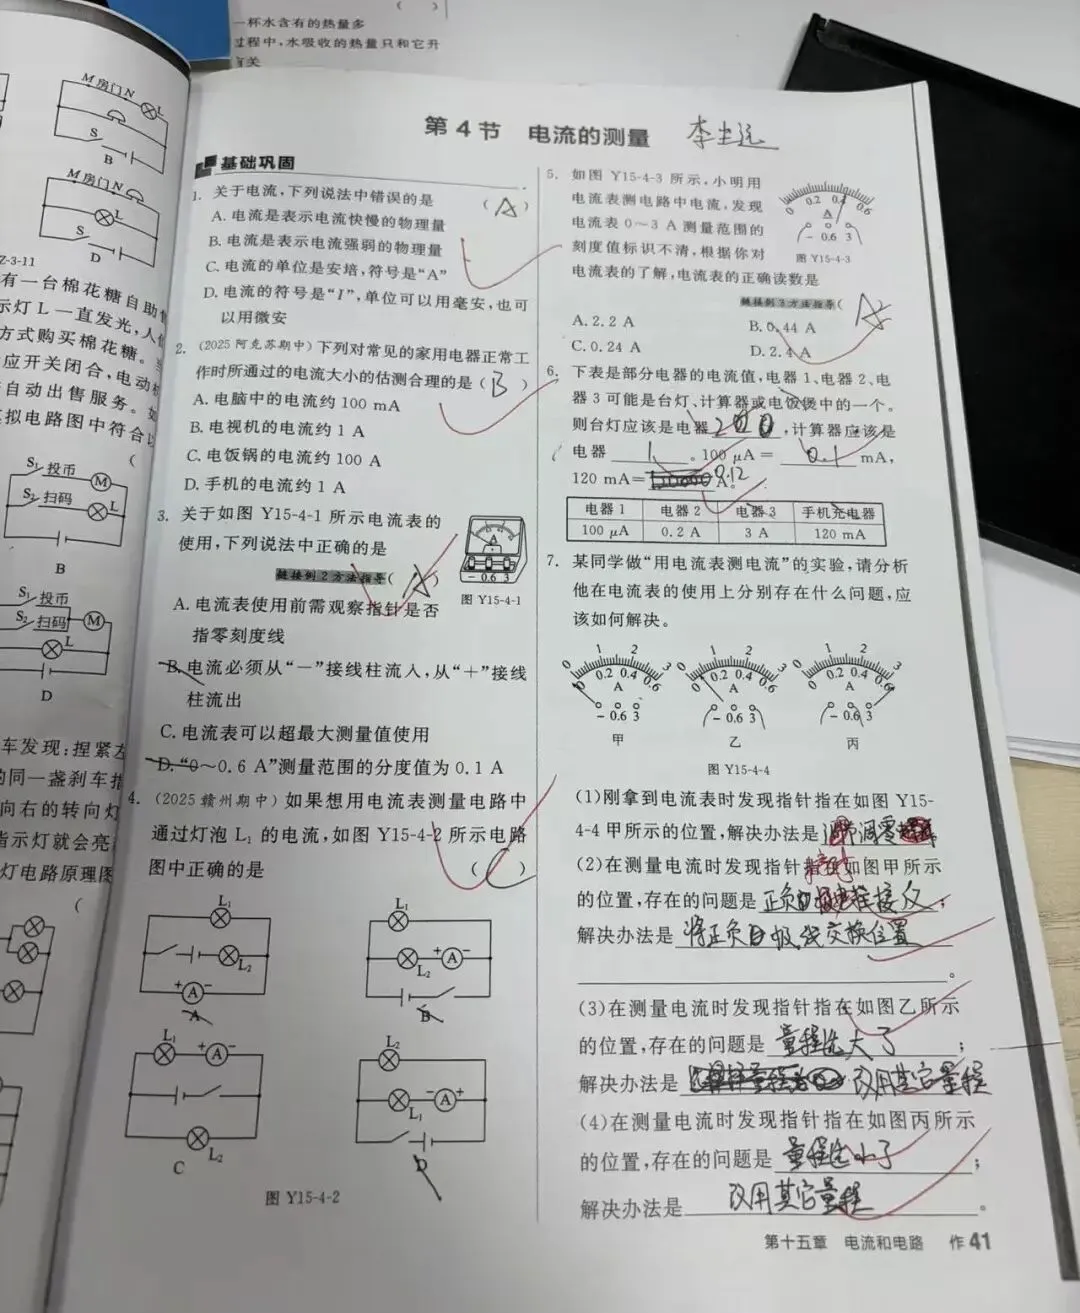 一杯水含有的热量多
过程中,水吸收的热量只和它升
有关
M 房门 N L
S
B
M 房门 N
L
S
D
Z-3-11
有一台棉花糖自助售
示灯 L 一直发光,人
方式购买棉花糖。当
应开关闭合,电动机
自动出售服务。如
拟电路图中符合以
(
S₁ 投币 M
S₂ 扫码 L
B
S₁ 投币
S₂ 扫码 M
L
D
车发现:捏紧左
的同一盏刹车指
向右的转向灯
指示灯就会亮
灯电路原理图
(
第 4 节 电流的测量
基础巩固
1. 关于电流,下列说法中错误的是 (A)
A. 电流是表示电流快慢的物理量
B. 电流是表示电流强弱的物理量
C. 电流的单位是安培,符号是“A”
D. 电流的符号是“I”,单位可以用毫安,也可
以用微安
2. (2025 阿克苏期中)下列对常见的家用电器正常工
作时所通过的电流大小的估测合理的是(B)
A. 电脑中的电流约 100 mA
B. 电视机的电流约 1 A
C. 电饭锅的电流约 100 A
D. 手机的电流约 1 A
3. 关于如图 Y15-4-1 所示电流表的
使用,下列说法中正确的是
链接例 2 方法指导(A)
A
- 0.6 3
图 Y15-4-1
A. 电流表使用前需观察指针是否
指零刻度线
B. 电流必须从“-”接线柱流入,从“+”接线
柱流出
C. 电流表可以超最大测量值使用
D. “0~0.6 A”测量范围的分度值为 0.1 A
4. (2025 赣州期中)如果想用电流表测量电路中
通过灯泡 L₁ 的电流,如图 Y15-4-2 所示电路
图中正确的是 (C)
L₁
L₂
+ A -
A
L₁
+ A -
L₂
B
L₁ + A -
L₂
C
L₂
- A +
L₁
D
图 Y15-4-2
5. 如图 Y15-4-3 所示,小明用
电流表测电路中电流,发现
电流表 0~3 A 测量范围的
刻度值标识不清,根据你对
电流表的了解,电流表的正确读数是
链接例 3 方法指导(A
0 0.2 0.4 0.6
A
- 0.6 3
图 Y15-4-3
A. 2.2 A B. 0.44 A
C. 0.24 A D. 2.4 A
6. 下表是部分电器的电流值,电器 1、电器 2、电
器 3 可能是台灯、计算器或电饭煲中的一个。
则台灯应该是电器 2 ,计算器应该是
电器 1 。100 μA = 0.1 mA,
120 mA= 0.12 A。
电器 1 电器 2 电器 3 手机充电器
100 μA 0.2 A 3 A 120 mA
7. 某同学做“用电流表测电流”的实验,请分析
他在电流表的使用上分别存在什么问题,应
该如何解决。
0 1 2 3
0 0.2 0.4 0.6
A
- 0.6 3
甲
0 1 2 3
0 0.2 0.4 0.6
A
- 0.6 3
乙
0 1 2 3
0 0.2 0.4 0.6
A
- 0.6 3
丙
图 Y15-4-4
(1)刚拿到电流表时发现指针指在如图 Y15-
4-4 甲所示的位置,解决办法是 调零
(2)在测量电流时发现指针指在如图甲所示
的位置,存在的问题是 正负 接反 ;
解决办法是 将正负 线交换位置
。
(3)在测量电流时发现指针指在如图乙所示
的位置,存在的问题是 量程选大了 ;
解决办法是 改用其它量程
(4)在测量电流时发现指针指在如图丙所示
的位置,存在的问题是 量程选小了 ;
解决办法是 改用其它量程 。
第十五章 电流和电路 作 41